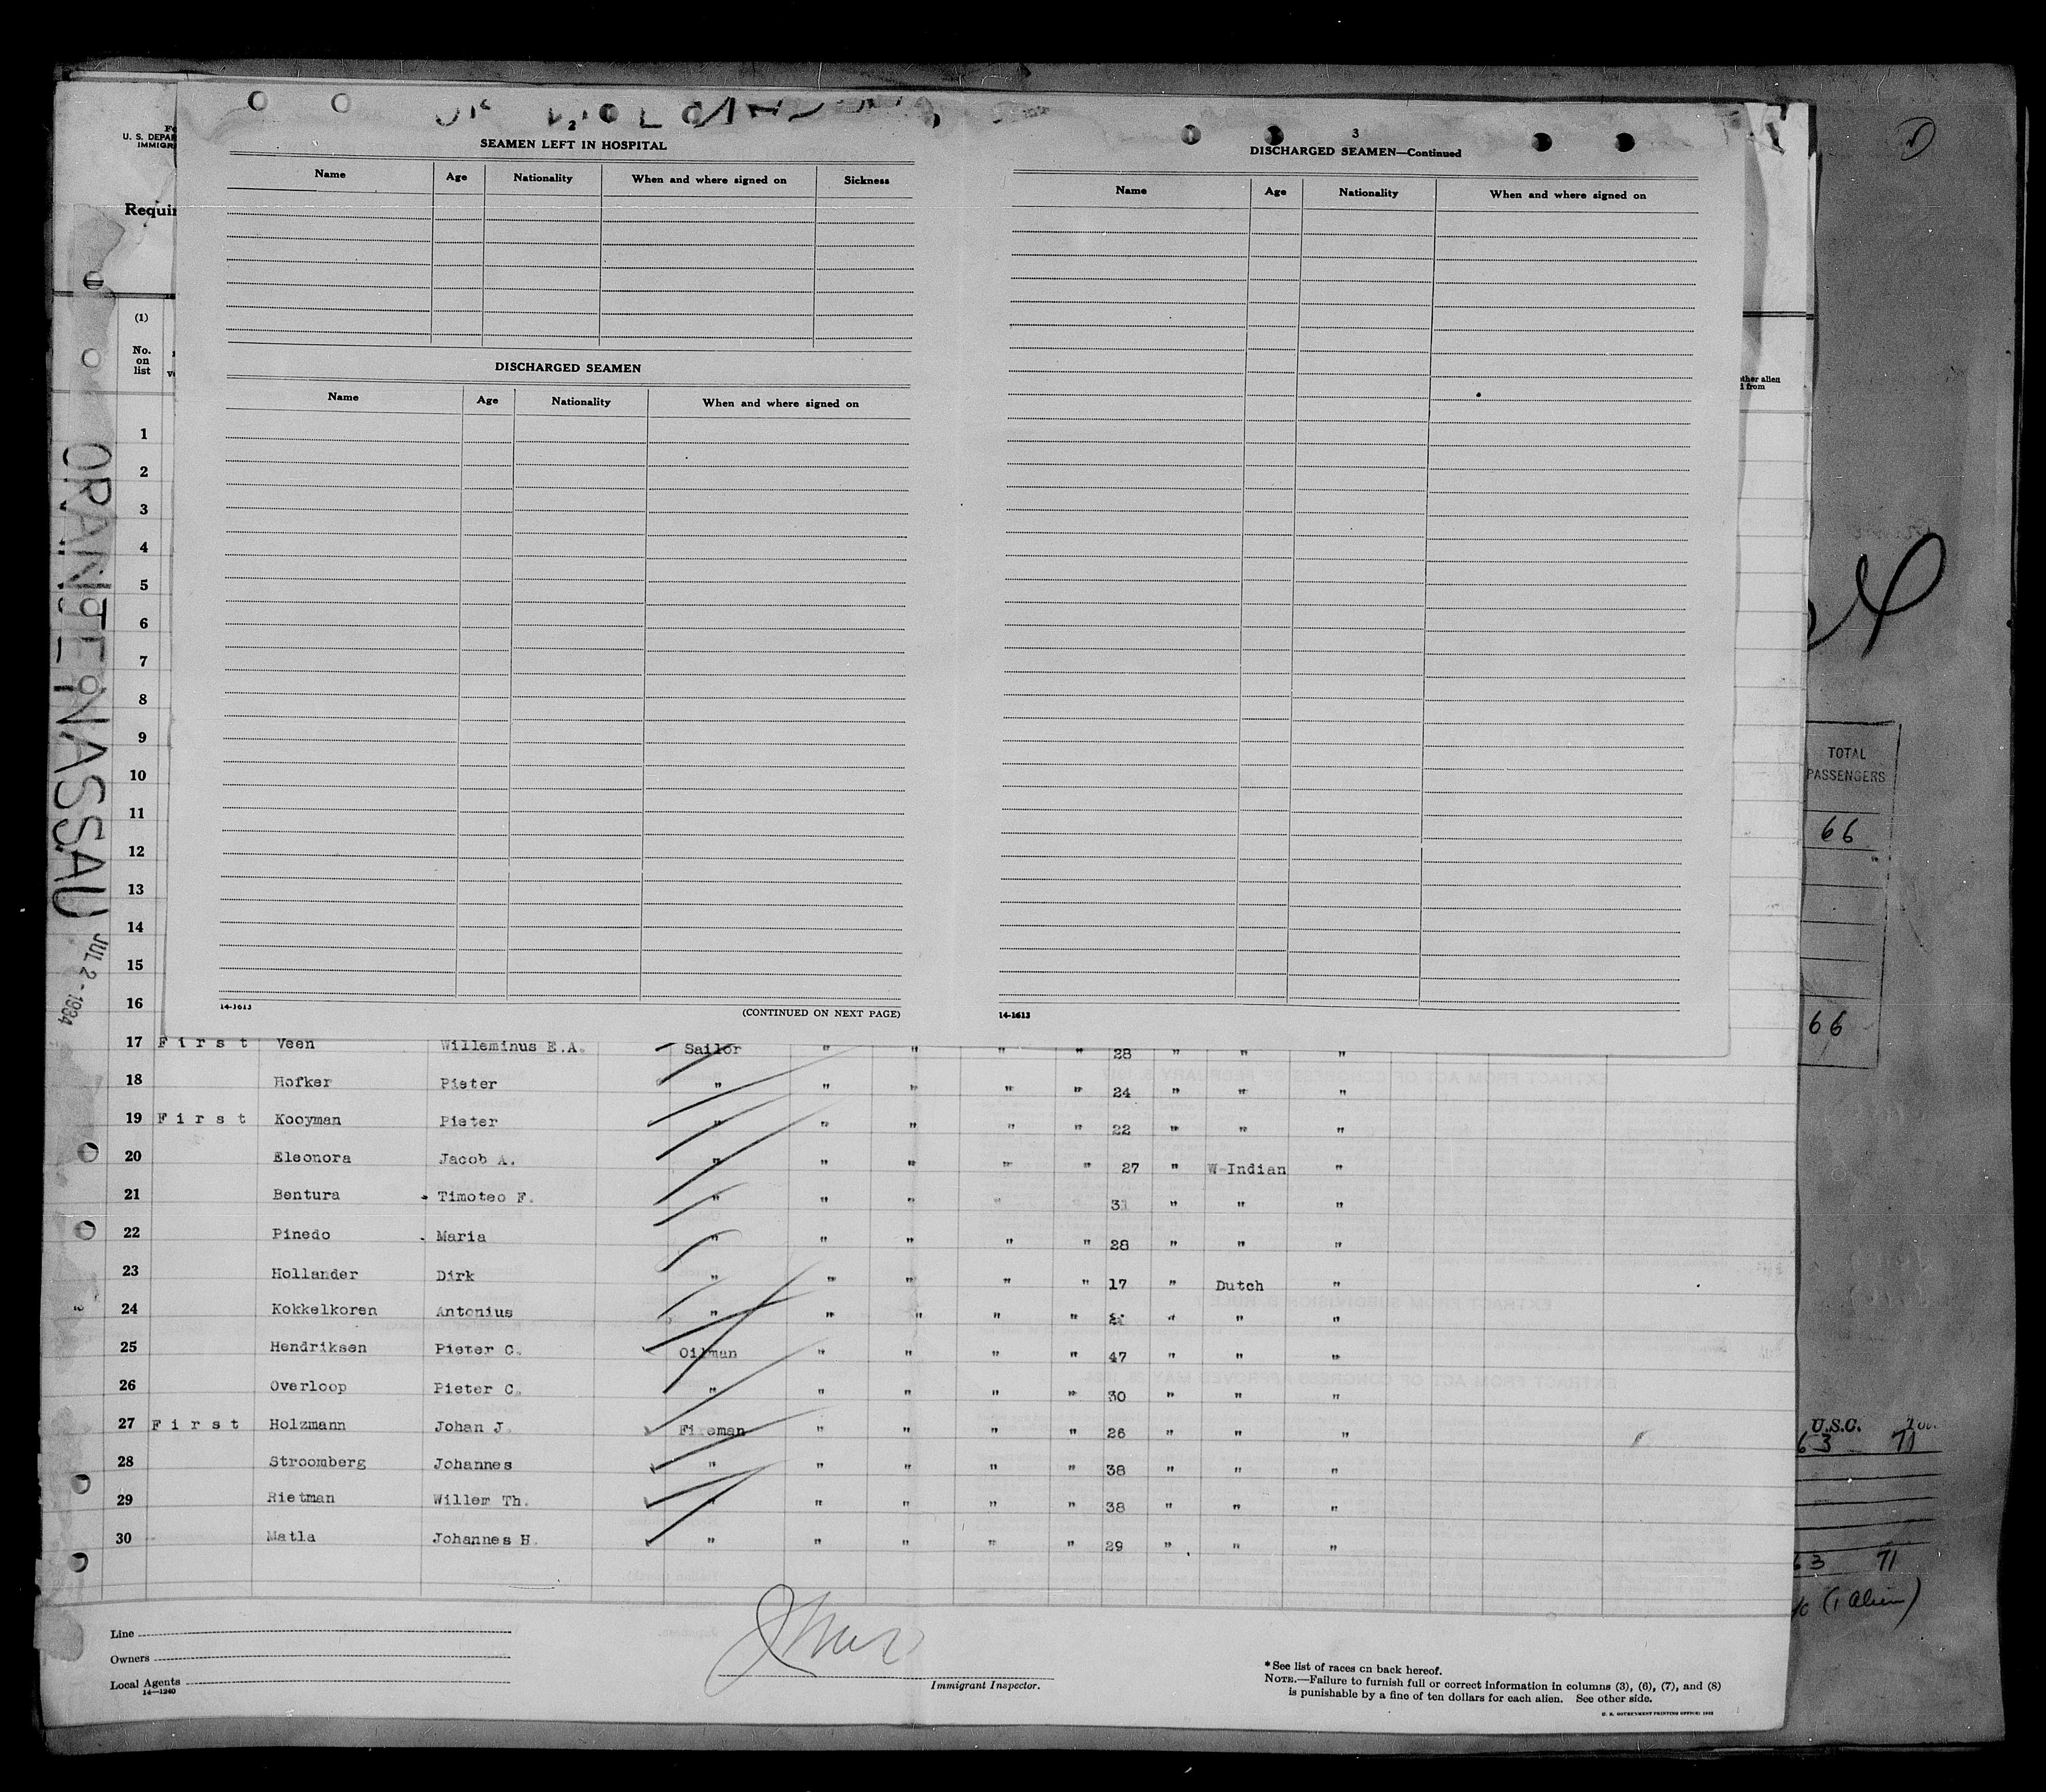 2
SEAMEN LEFT IN HOSPITAL
Name Age Nationality When and where signed on Sickness
DISCHARGED SEAMEN
Name Age Nationality When and where signed on
14-1613 (CONTINUED ON NEXT PAGE)
3
DISCHARGED SEAMEN—Continued
Name Age Nationality When and where signed on
14-1613
U. S. DEPAR
IMMIGR
Requir
(1)
No.
on
list
ORANJE NASSAU JUL 2 - 1934
other alien
d from
1
2
3
4
5
6
7
8
9
10
11
12
13
14
15
16
17 First Veen Willeminus E.A. Sailor " " " " 28 " " "
18 Hofker Pieter " " " " " 24 " " "
19 First Kooyman Pieter " " " " " 22 " " "
20 Eleonora Jacob A. " " " " " 27 " W-Indian "
21 Bentura Timoteo F. " " " " " 31 " " "
22 Pinedo Maria " " " " " 28 " " "
23 Hollander Dirk " " " " " 17 " Dutch "
24 Kokkelkoren Antonius " " " " " " " "
25 Hendriksen Pieter C. Oilman " " " " 47 " " "
26 Overloop Pieter C. " " " " " 30 " " "
27 First Holzmann Johan J. Fireman " " " " 26 " " "
28 Stroomberg Johannes " " " " " 38 " " "
29 Rietman Willem Th. " " " " " 38 " " "
30 Matla Johannes H. " " " " " 29 " " "
Line
Owners
Local Agents
14—1240
Immigrant Inspector.
* See list of races on back hereof.
NOTE.—Failure to furnish full or correct information in columns (3), (6), (7), and (8)
is punishable by a fine of ten dollars for each alien. See other side.
U. S. GOVERNMENT PRINTING OFFICE: 1932
TOTAL
PASSENGERS
66
66
U.S.C.
63 71
63 71
(1 Alien)